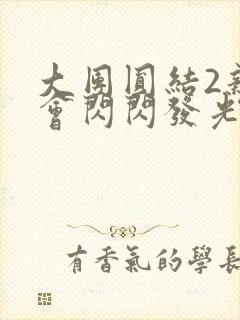 大團圓結2
會閃閃發光
有香氣的學長